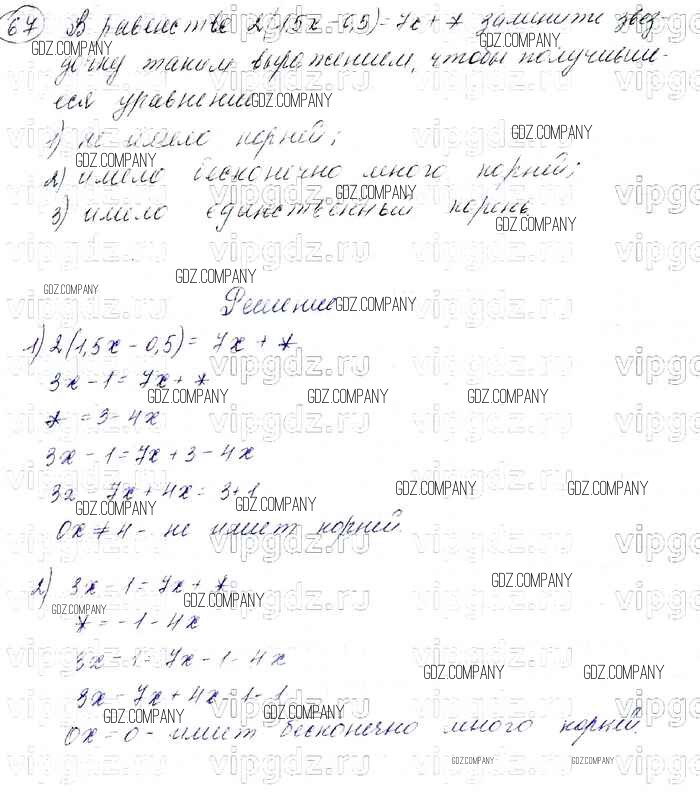 67 В равенстве 2(1,5x - 0,5) = 7x + * замените звез-
дочку таким выражением, чтобы получивше-
еся уравнение
1) не имело корней;
2) имело бесконечно много корней;
3) имело единственный корень.
Решение
1) 2(1,5x - 0,5) = 7x + *
3x - 1 = 7x + *
* = 3 - 4x
3x - 1 = 7x + 3 - 4x
3x - 7x + 4x = 3 + 1
0x ≠ 4 - не имеет корней.
2) 3x - 1 = 7x + *
* = -1 - 4x
3x - 1 = 7x - 1 - 4x
3x - 7x + 4x = 1 - 1
0x = 0 - имеет бесконечно много корней.
GDZ.COMPANY
vipgdz.ru